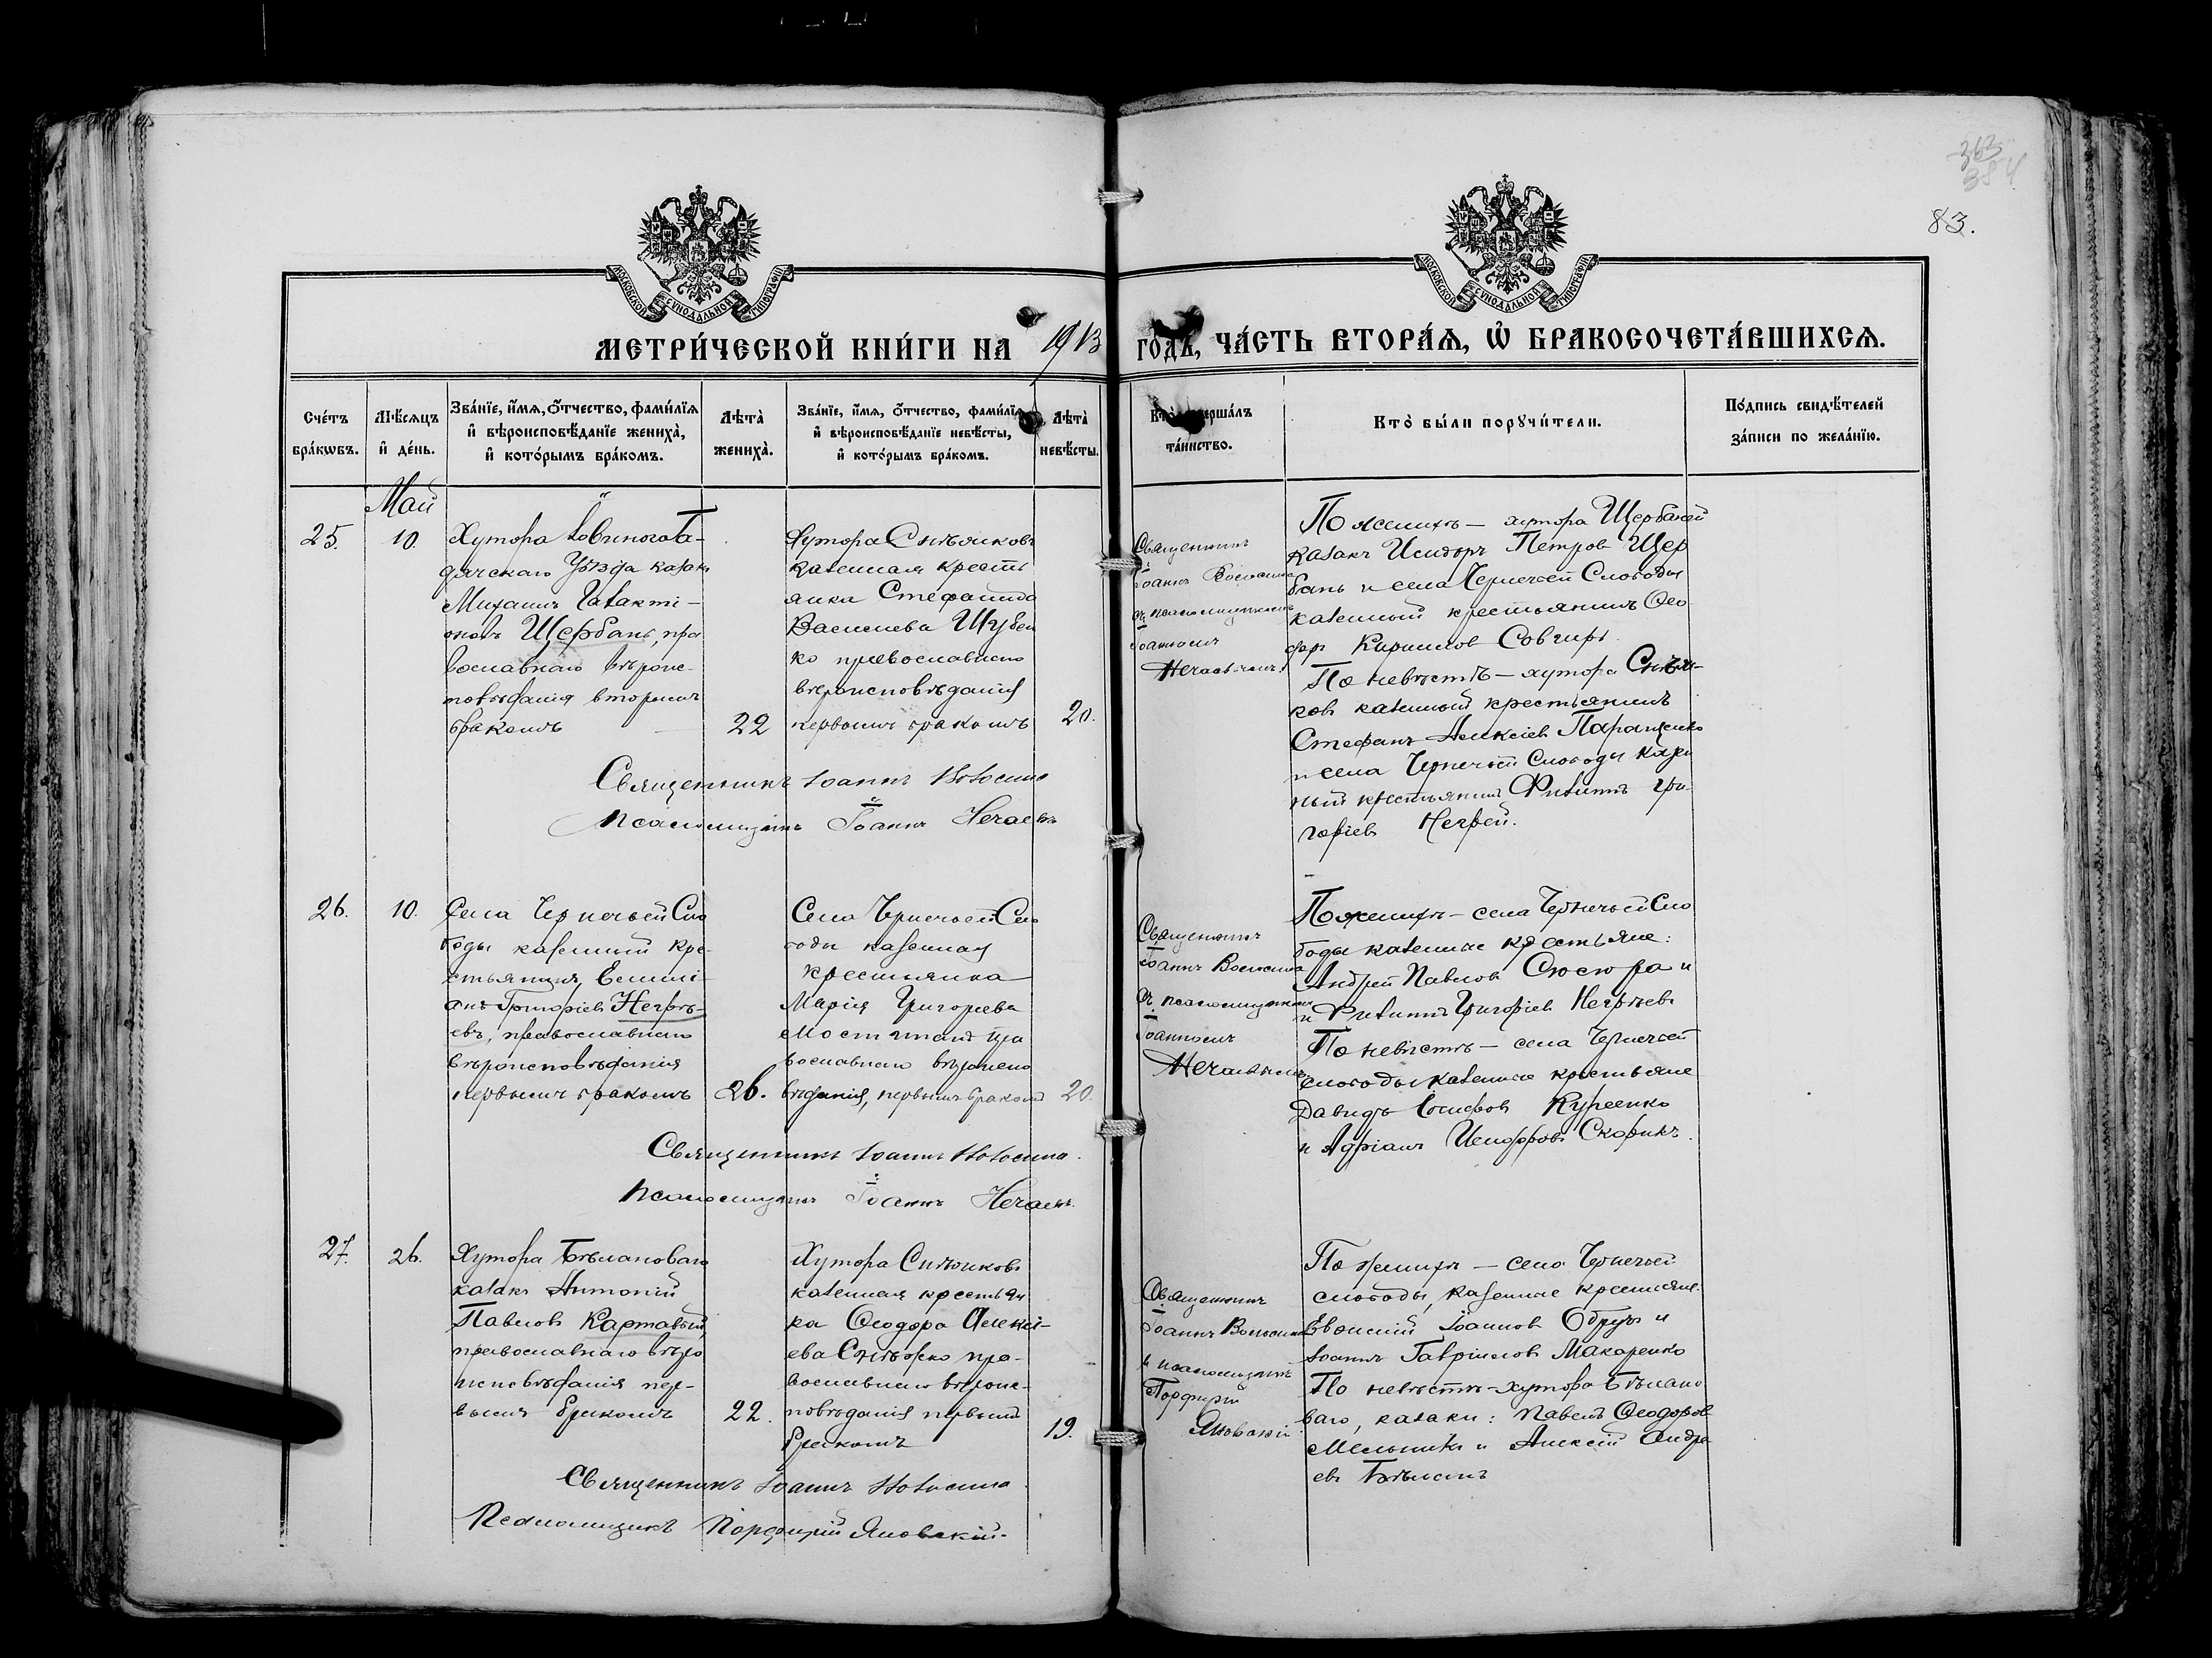 363
384
83.
МОСКОВСКОЙ СУНОДАЛЬНОЙ ТИПОГРАФІИ
МОСКОВСКОЙ СУНОДАЛЬНОЙ ТИПОГРАФІИ
МЕТРИ́ЧЕСКОЙ КНИ́ГИ НА 1913 ГОДЪ, ЧА́СТЬ ВТОРА́Ѧ, Ѡ҆ БРАКОСОЧЕТА́ВШИХСѦ.
Сче́тъ
бра́кѡвъ.
Мѣ́сѧцъ
и҆ де́нь.
Зва́нїе, и҆́мѧ, ѻ҆́тчество, фами́лїѧ
и҆ вѣроисповѣ́данїе жениха̀,
и҆ кото́рымъ бра́комъ.
Лѣта̀
жениха̀.
Зва́нїе, и҆́мѧ, ѻ҆́тчество, фами́лїѧ
и҆ вѣроисповѣ́данїе невѣ́сты,
и҆ кото́рымъ бра́комъ.
Лѣта̀
невѣ́сты.
Кто̀ соверша́лъ
та́инство.
Кто̀ бы́ли порꙋчи́тели.
По́дпись свидѣ́телей
за́писи по жела́нїю.
Май
25.
10.
Хутора
дячскаго Уѣзда казакъ
Михаилъ Галакті-
оновъ Щербань, пра
вославнаго вѣроис-
повѣданія вторымъ
бракомъ
22
Хутора Снѣжковъ
казенная кресть
янка Стефанида
Васильева Шубен
ко православнаго
вѣроисповѣданія
первымъ бракомъ
20.
Священникъ
Іоаннъ Волосина
съ псаломщикомъ
Іоанномъ
Нечаевымъ
По женихѣ — хутора Щербаней
казакъ Исидоръ Петровъ Щер
бань и села Чернечьей Слободы
казенный крестьянинъ Ѳео
доръ Кириловъ Совгиръ.
По невѣстѣ — хутора Снѣж-
ковъ казенный крестьянинъ
Стефанъ Алексіевъ Паращенко
и села Чернечьей Слободы казен
ный крестьянинъ Филиппъ Гри
горіевъ Негрей.
Священникъ Іоаннъ Волосина
Псаломщикъ Іоаннъ Нечаевъ
26.
10.
Села Чернечьей Сло
боды казенный кре-
стьянинъ Емилі-
анъ Григоріевъ Негрѣ-
евъ, православнаго
вѣроисповѣданія
первымъ бракомъ
26.
Села Чернечьей Сло
боды казенная
крестьянка
Марія Григорьева
пра
вославнаго вѣроиспо
вѣданія, первымъ бракомъ
20.
Священникъ
Іоаннъ Волосина
съ псаломщикомъ
Іоанномъ
Нечаевымъ
По женихѣ — села Чернечьей Сло
боды казенные крестьяне:
Андрей Павловъ Сюсюра и
и Филиппъ Григоріевъ Негрѣевъ
По невѣстѣ — села Чернечьей
слободы казенные крестьяне
Давидъ Іосифовъ Куреенко
и Адріанъ Исидоровъ Скорикъ.
Священникъ Іоаннъ Волосина.
Псаломщикъ Іоаннъ Нечаевъ.
27.
26.
Хутора Бѣлановаго
казакъ Антоній
Павловъ Картавый,
православнаго вѣро
исповѣданія пер-
вымъ бракомъ
22.
Хутора Снѣжковъ
казенная крестьян
ка Ѳеодора Алексі-
ева Снѣжко пра-
вославнаго вѣроис-
повѣданія первымъ
бракомъ
19.
Священникъ
Іоаннъ Волосина
и псаломщикъ
Порфирій
Яновскій
По женихѣ — села Чернечьей
слободы, казенные крестьяне:
Іоанновъ Обрусъ и
Іоаннъ Гавріиловъ Макаренко
По невѣстѣ — хутора Бѣлано
ваго, казаки: Павелъ Ѳеодоровъ
Мельникъ и Алексій Андре
евъ Бѣланъ
Священникъ Іоаннъ Волосина.
Псаломщикъ Порфирій Яновскій.